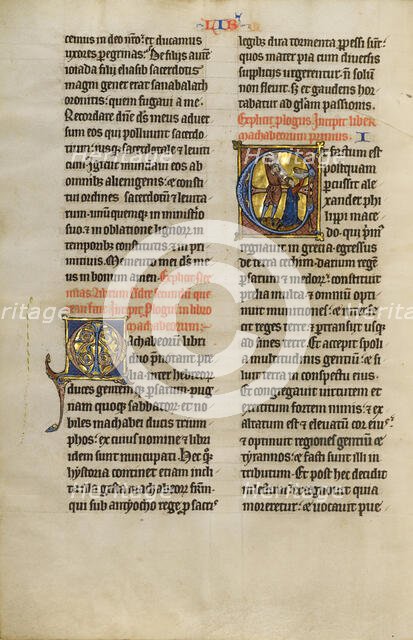 LIB
cemus in deo nr̄o: et ducamus
uxores peregrinas; De filijs autē
ioiada filij eliasib sacerdotis
magni gener erat sanaballath
oronitis: quem fugaui a me.
Recordare dn̄e ds̄ meus aduer
sum eos qui polluunt sacerdo
tium: iusq; sacerdotale & leuiti
cum; Igitur mundaui eos ab
omnibus alienigenis: & consti
tui ordines sacerdotū & leuita
rum: unūquemq; in ministerio
suo: & in oblatione lignorum in
temporibus constitutis & in pri
mitiuis. Memento mei ds̄ me
us in bonum amen. Explicit
Incipit Prologus in libro
machabeorum:
Machabeorum libri
duo prenotant pre
lia inter hebreos
duces gentemq; persarum: pug
nam quoq; sabbatorum: et no
biles machabei ducis trium
phos: ex cuius nomine & libri
idem sunt nuncupati. Hec q̄q;
hystoria continet etiam incli
ta illa gesta machabeorum fratrum
qui sub antyocho rege pro sacris
legibus dira tormenta perpessi sunt:
quos mater pia cum diuersis
suplicijs urgerentur: non solum
non fleuit: sed & gaudens hor
tabatur ad gloriam passionis.
Explicit plogus Incipit liber
machabeorum primus. I
Et factum est
postquam
percussit ale
xander phi
lippi mace
do: qui primus
regnauit in grecia: egressus
de terra cethim: darium regē
persarum & medorum: constituit
prelia multa: & omnium opti
nuit munitiones: & interfe
cit reges terre: & pertransijt usq;
ad fines terre. Et accepit spolia
multitudinis gentium: & silu
it terra in conspectu eius;
Et congregauit uirtutem &
exercitum fortem nimis: & ex
altatum est & eleuatum cor eius:
& optinuit regiones gentium &
tyrannos: & facti sunt illi in
tributum. Et post hec decidit
in lectum: & cognouit quia
moreretur: & uocauit pue
Heritage
Images